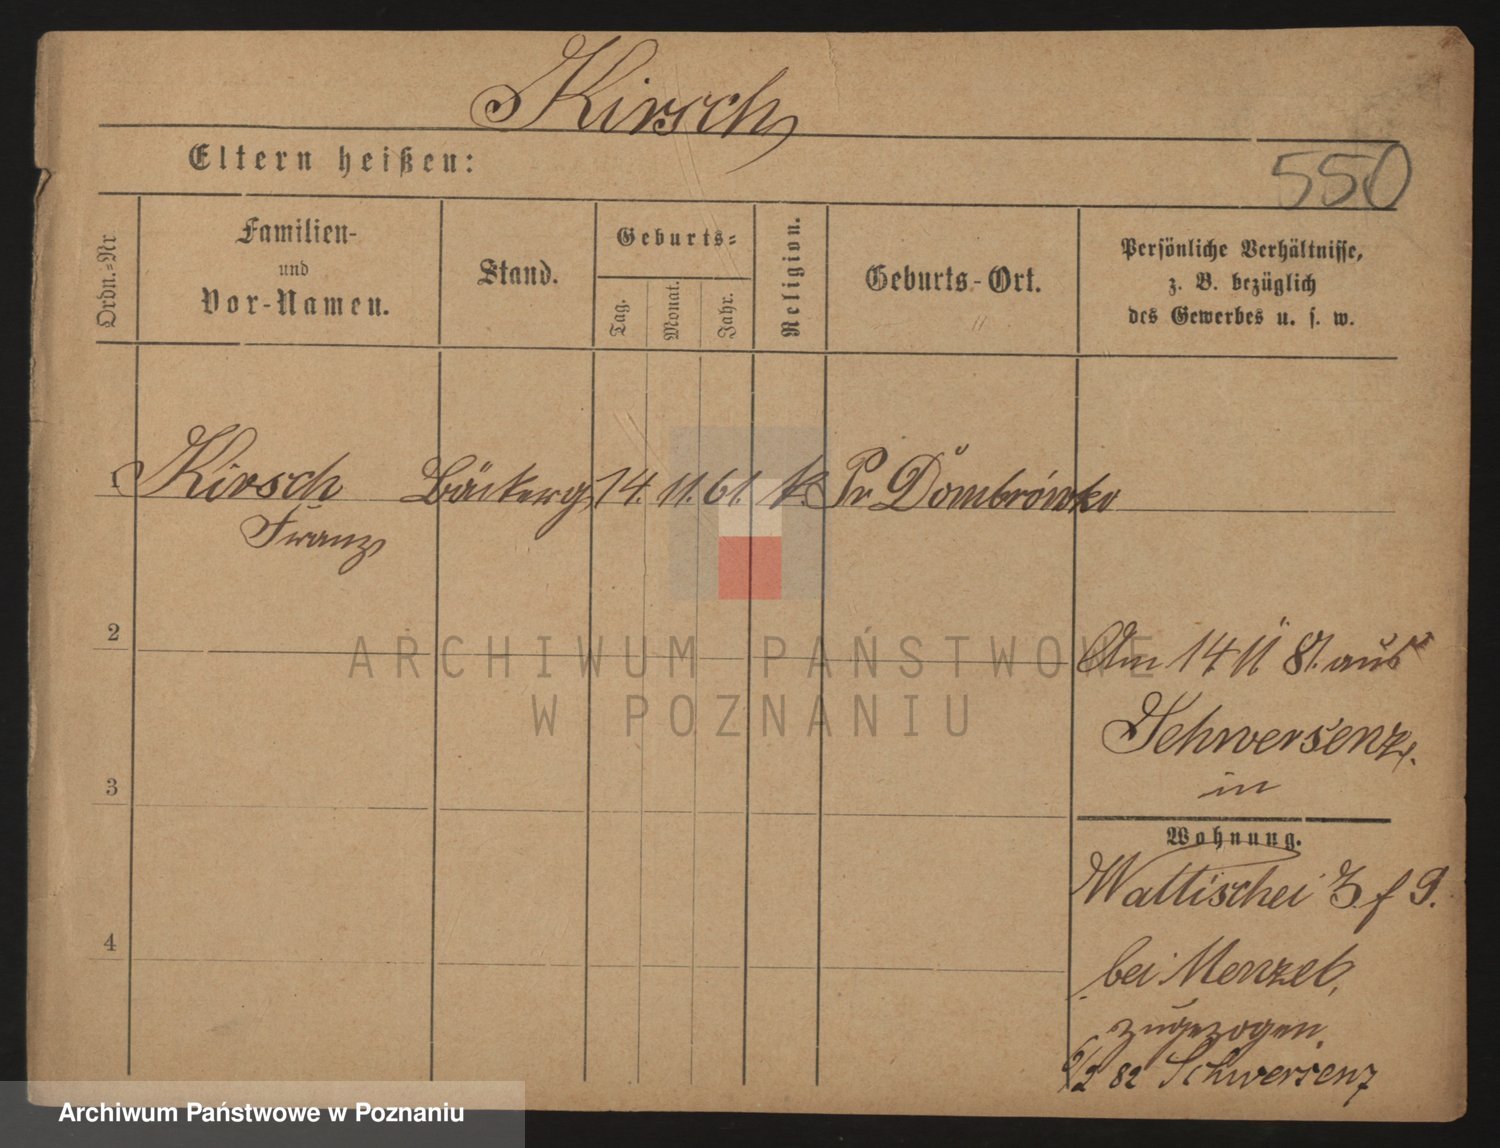 Kirsch
Eltern heißen:
550
Ordn.-Nr
Familien-
und
Vor-Namen.
Stand.
Geburts-
Tag.
Monat.
Jahr.
Religion.
Geburts-Ort.
Persönliche Verhältnisse,
z. B. bezüglich
des Gewerbes u. s. w.
1 Kirsch Bäckerg. 14. 11. 61. k. Pr. Dombrówko
Franz
2
Am 14 11 81. aus
Schwersenz.
in
3
Wohnung.
Wallischei 3 f 9.
4
bei Menzel,
zugezogen.
6/2 82 Schwersenz
ARCHIWUM PAŃSTWOWE
W POZNANIU
Archiwum Państwowe w Poznaniu